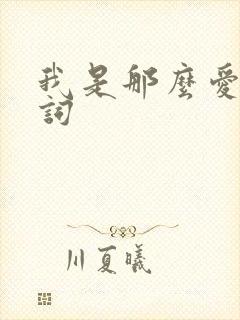 我是那麼愛
詞
川夏曦